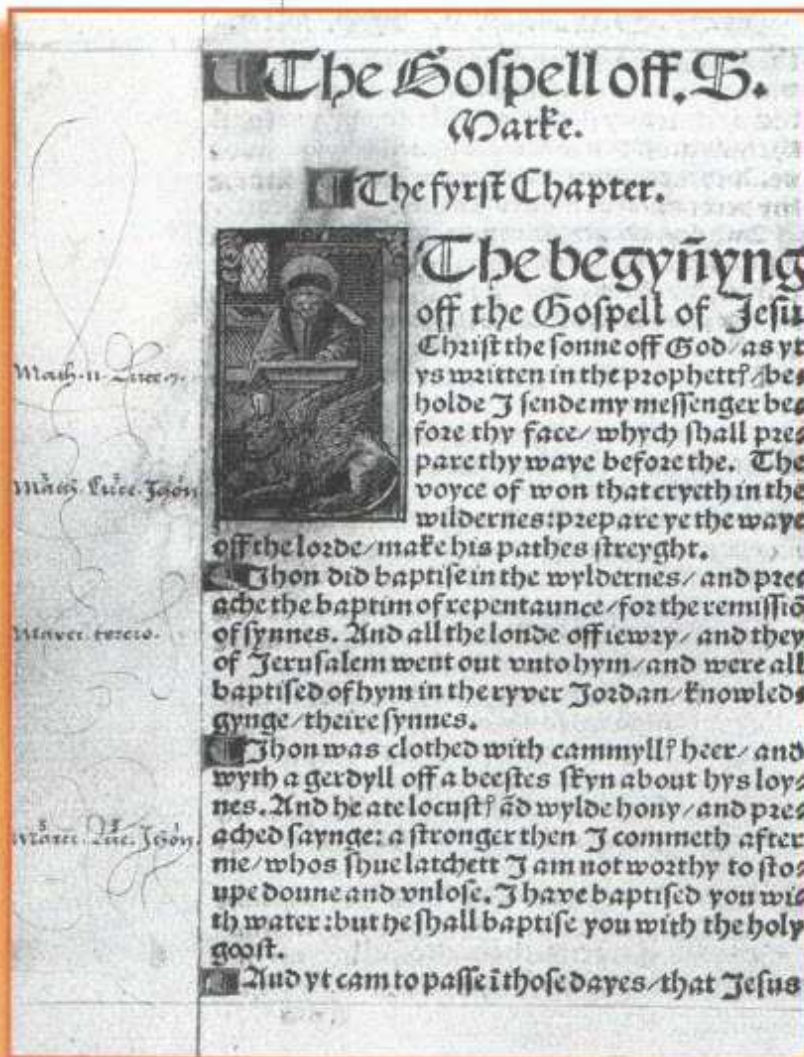 The Gospell off. S.
Marke.
The fyrst Chapter.
The begyñyng
off the Gospell of Jesu
Christ the sonne off God/ as yt
ys written in the prophettꝭ/ be⸗
holde J sende my messenger be⸗
fore thy face/ whych shall pre⸗
pare thy waye before the. The
voyce of won that cryeth in the
wildernes: prepare ye the waye
off the lorde/ make his pathes streyght.
Jhon did baptise in the wyldernes/ and pre⸗
ache the baptim of repentaunce/ for the remissiō
of synnes. And all the londe off iewry/ and they
of Jerusalem went out vnto hym/ and were all
baptised of hym in the ryver Jordan/ knowled⸗
gynge/ theire synnes.
Jhon was clothed with cammyllꝭ heer/ and
wyth a gerdyll off a beestes skyn about hys loy⸗
nes. And he ate locustꝭ ād wylde hony/ and pre⸗
ached saynge: a stronger then J commeth after
me/ whos shue latchett J am not worthy to sto⸗
upe doune and vnlose. J have baptised you wi⸗
th water: but he shall baptise you with the holy
goost.
And yt cam to passe ī those dayes/ that Jesus
Math. 11 Luce. 7.
Luce. Jhon
tercio.
Luc. Jhon.